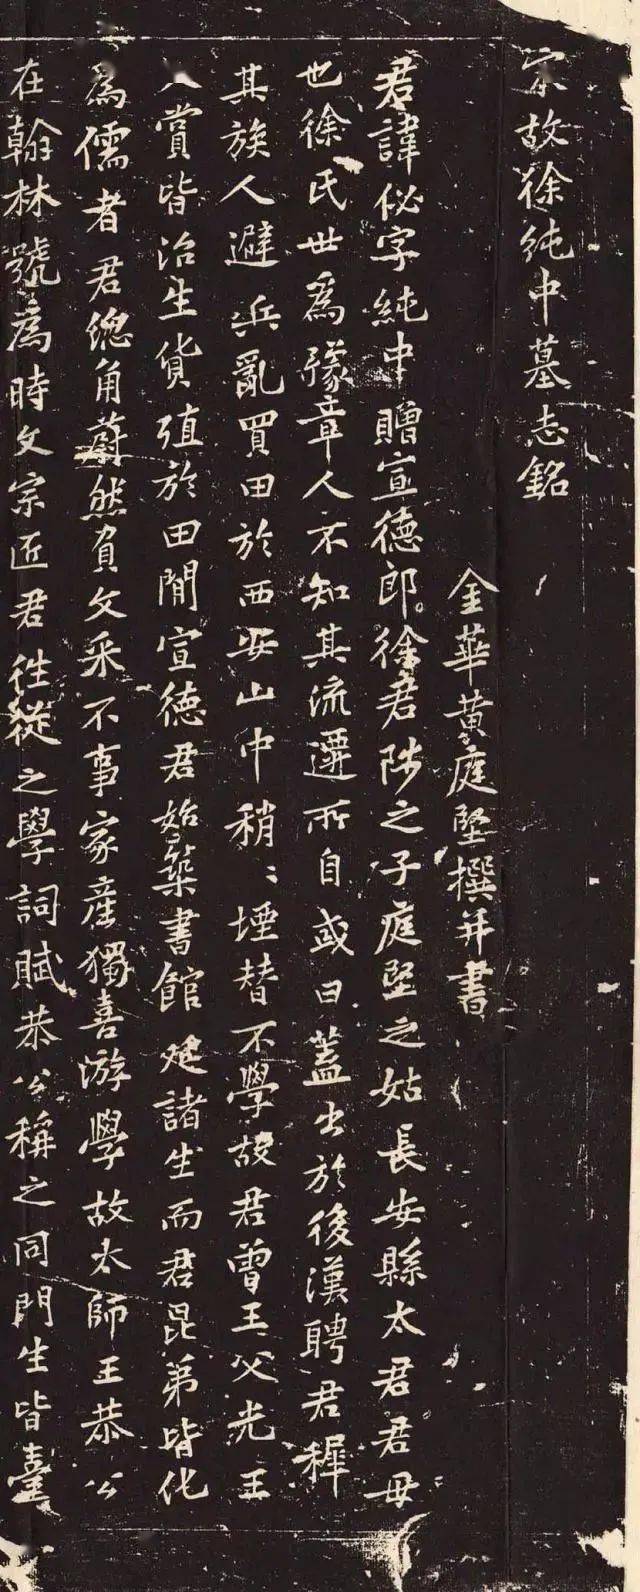 宋故徐純中墓志銘
金華黃庭堅撰并書
君諱佖字純中贈宣德郎徐君陟之子庭堅之姑長安縣太君君母
也徐氏世為豫章人不知其流遷所自或曰蓋出於後漢聘君穉
其族人避兵亂買田於西安山中稍〻堙替不學故君曾王父光王
父賞皆治生貨殖於田閒宣德君始築書館延諸生而君昆弟皆化
為儒者君總角蔚然負文采不事家產獨喜游學故太師王恭公
在翰林號為時文宗匠君往從之學詞賦恭公稱之同門生皆臺